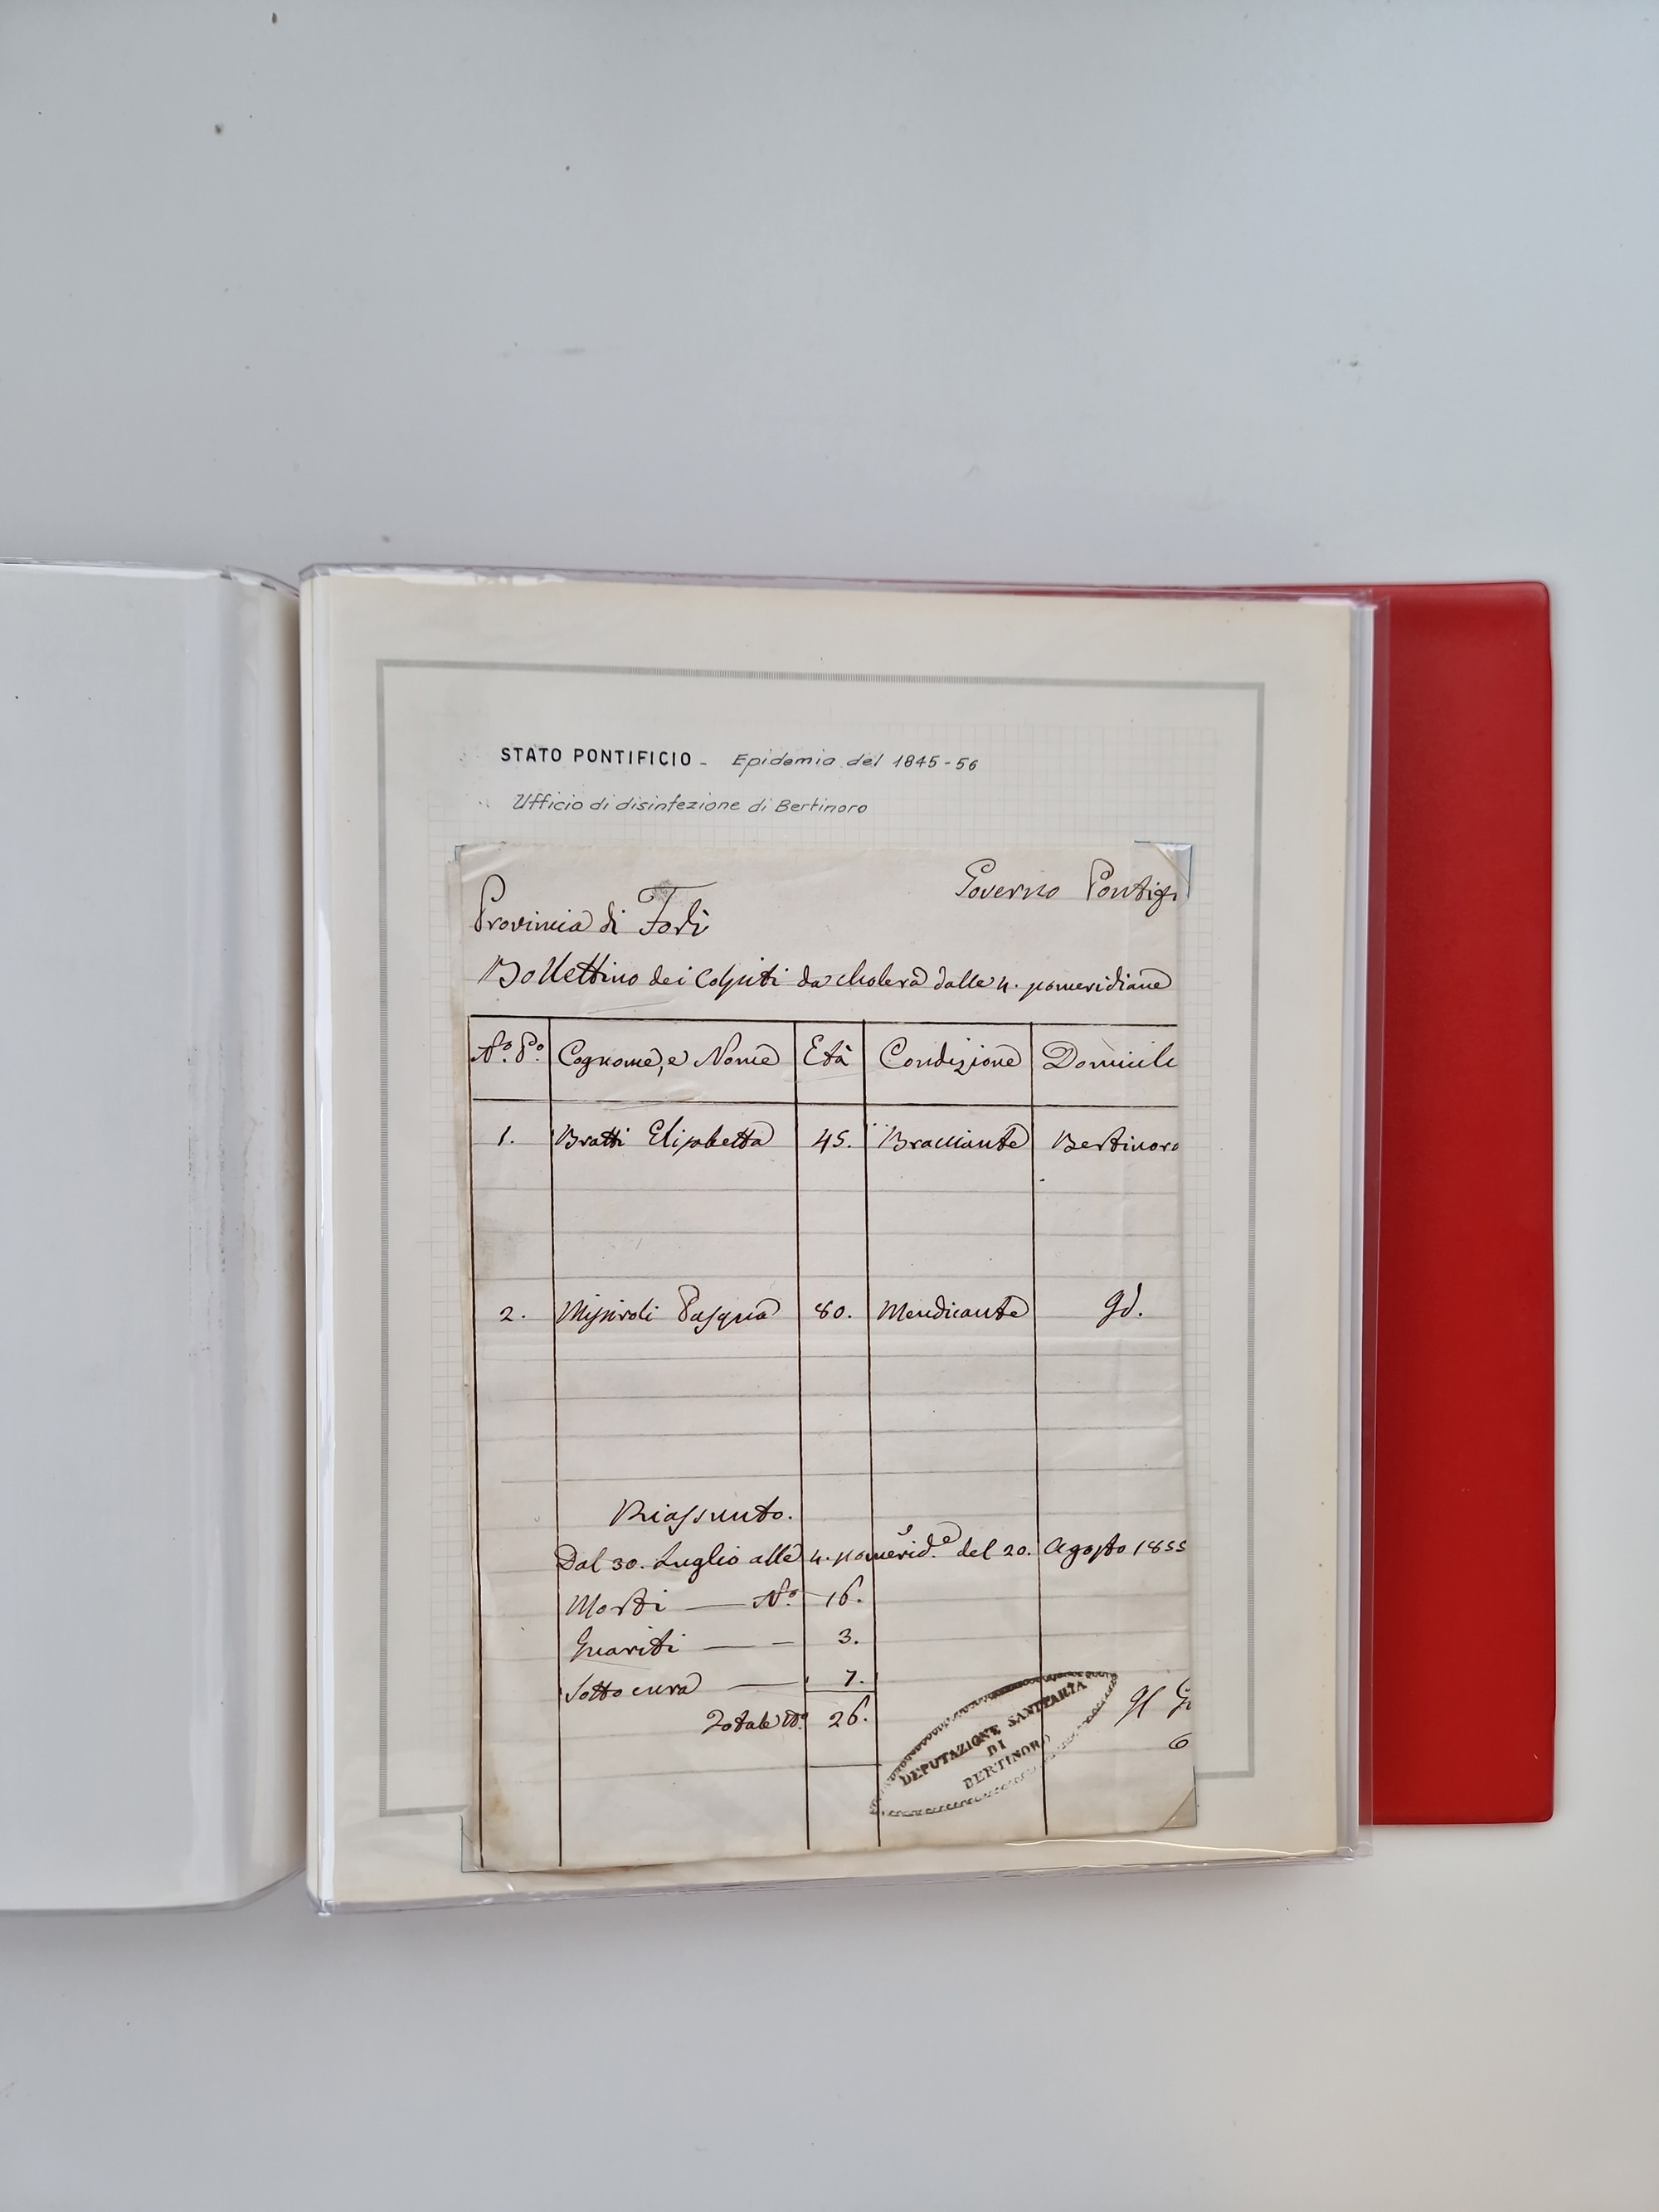 STATO PONTIFICIO - Epidemia del 1845-56
Ufficio di disinfezione di Bertinoro
Governo Pontif
Provincia di Forlì
Bollettino dei Colpiti da cholera dalle 4. pomeridiane
N.° P.° Cognome, e Nome Età Condizione Domicili
1. Bratti Elisabetta 45. Bracciante Bertinoro
2. Missiroli Pasqua 80. Mendicante Id.
Riassunto.
Dal 30. Luglio alle 4. pomerid.e del 20. Agosto 1855
Morti — N.° 16.
Guariti — — 3.
Sotto cura — 7.
Totale N.° 26.
DEPUTAZIONE SANITARIA
DI
BERTINORO